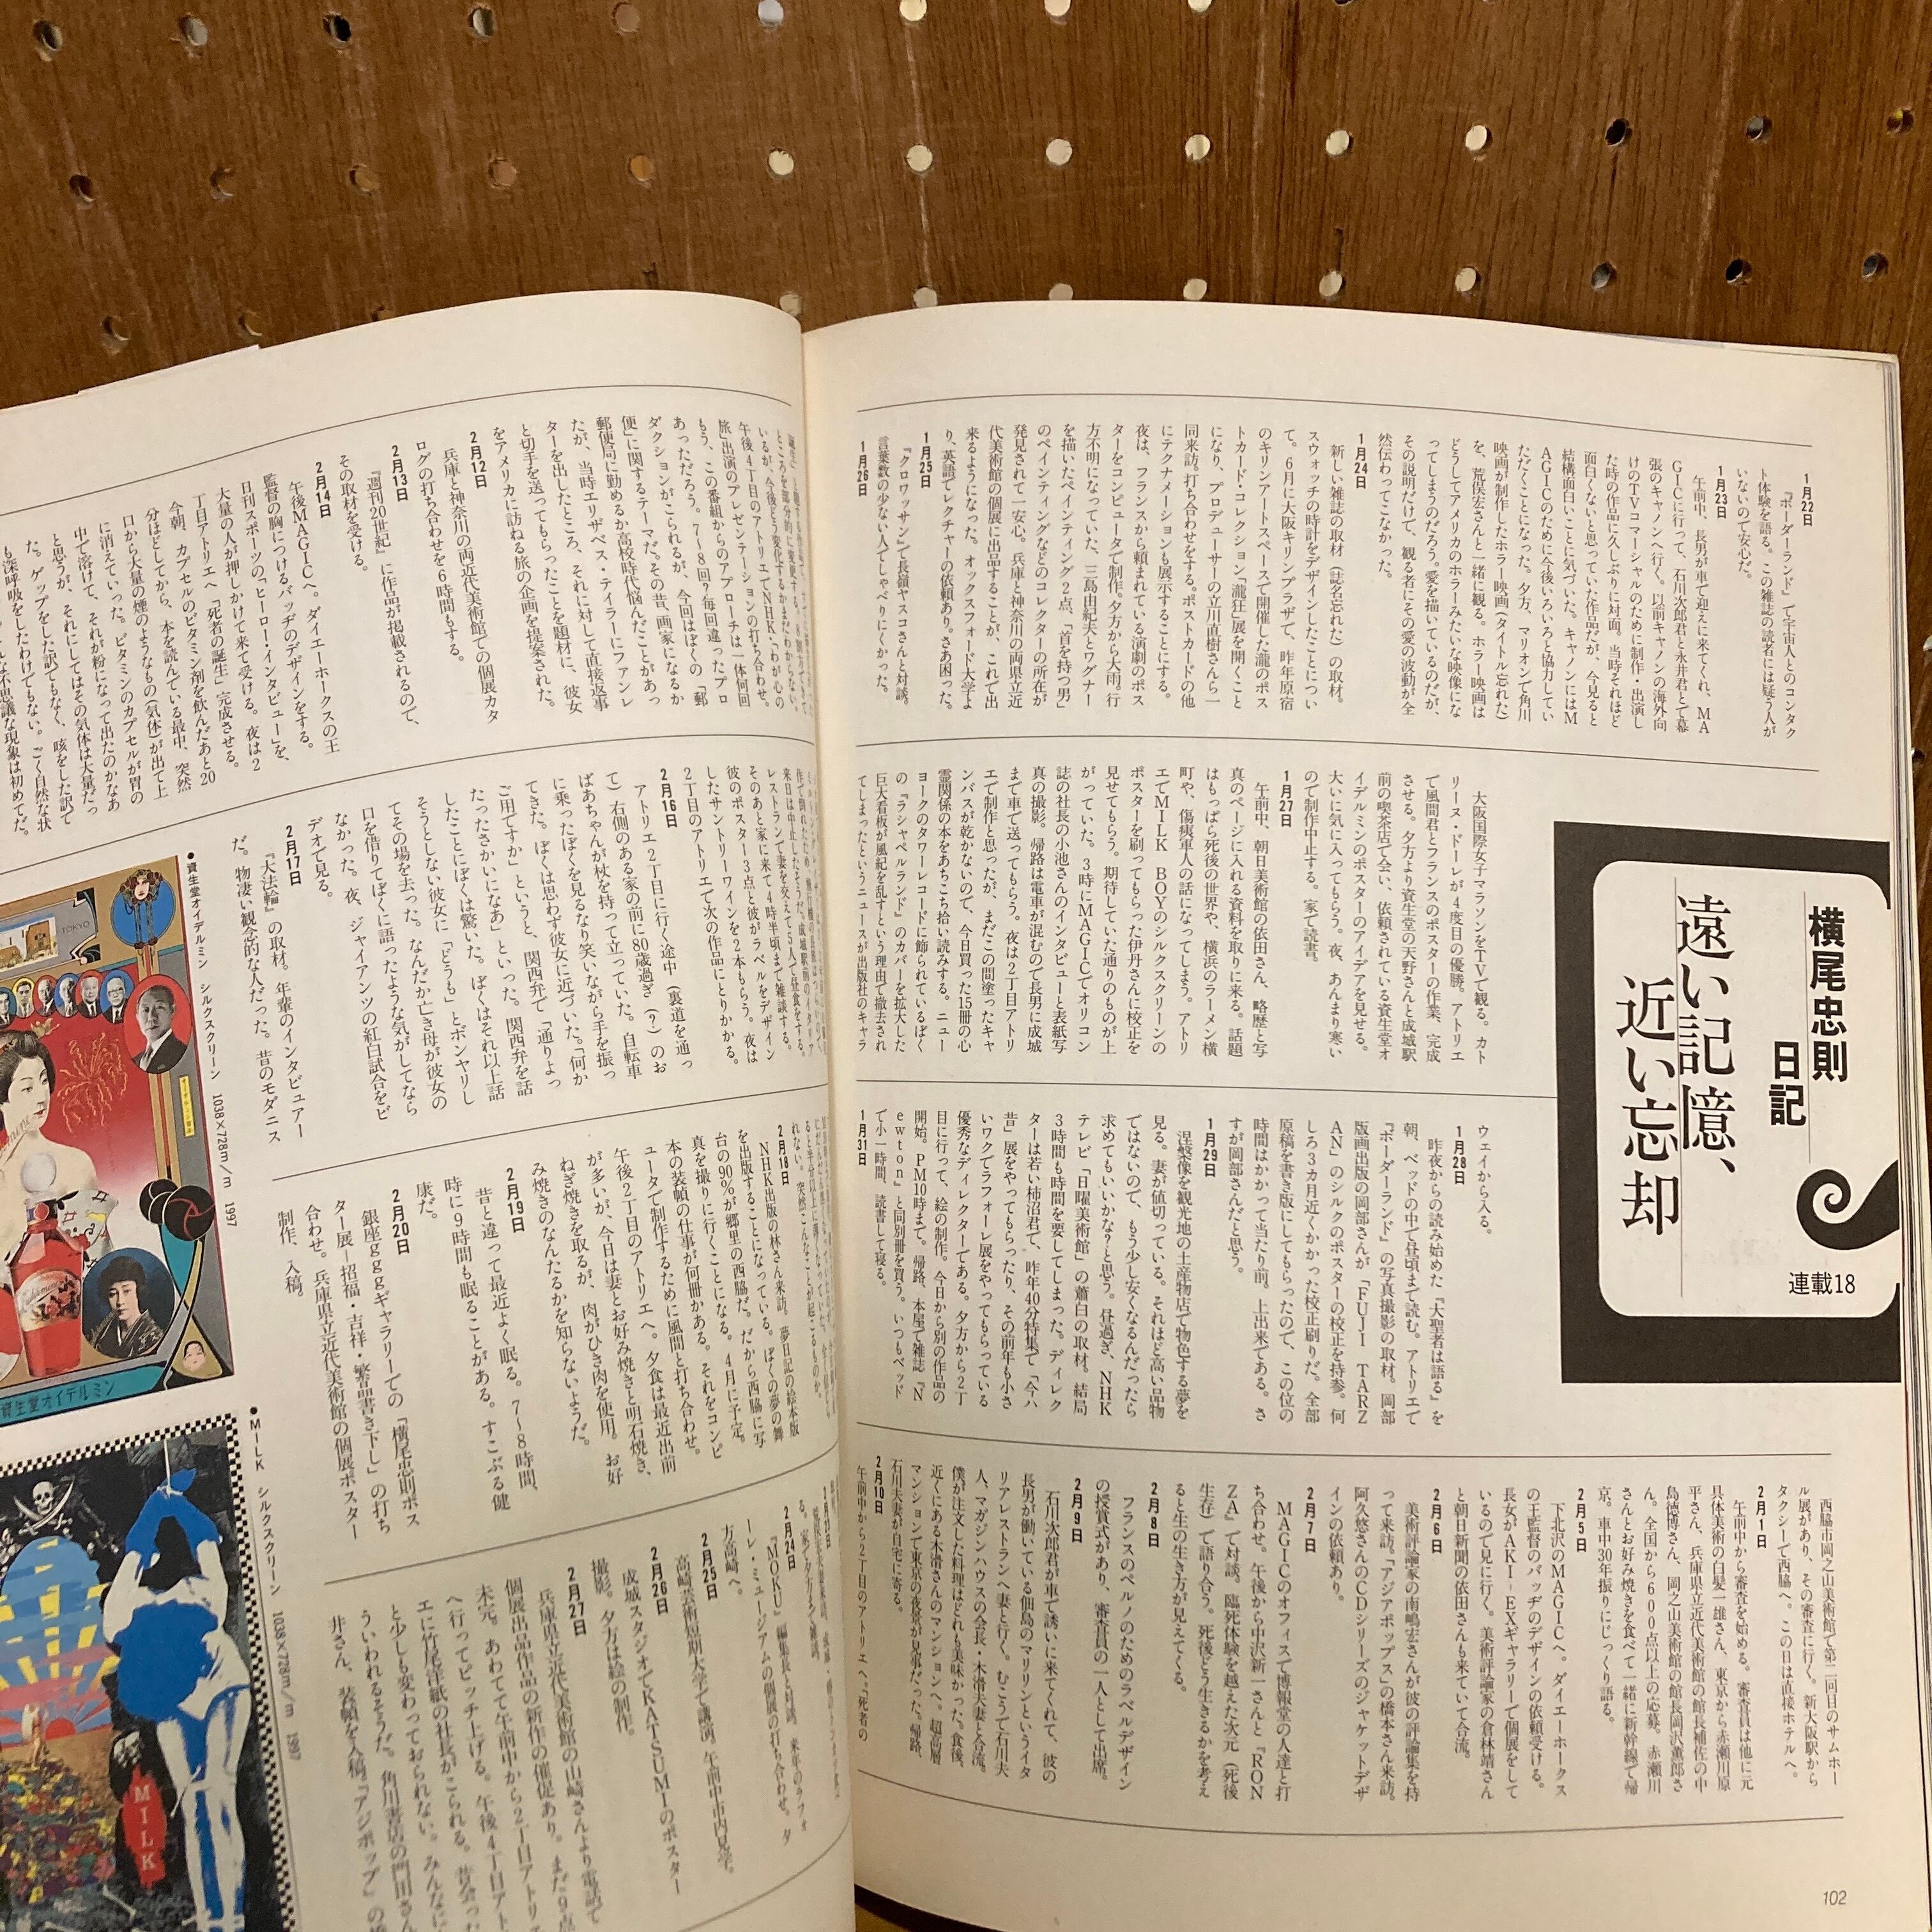 横尾忠則
日記
遠い記憶、
近い忘却
連載18
1月22日
『ボーダーランド』で宇宙人とのコンタク
ト体験を語る。この雑誌の読者には疑う人が
いないので安心だ。
1月23日
午前中、長男が車で迎えに来てくれ、MA
GICに行って、石川次郎君と永井君とで幕
張のキャノンへ行く。以前キャノンの海外向
けのTVコマーシャルのために制作・出演し
た時の作品に久しぶりに対面。当時それほど
面白くないと思っていた作品だが、今見ると
結構面白いことに気づいた。キャノンにはM
AGICのために今後いろいろと協力してい
ただくことになった。夕方、マリオンで角川
映画が制作したホラー映画(タイトル忘れた)
を、荒俣宏さんと一緒に観る。ホラー映画は
どうしてアメリカのホラーみたいな映像にな
ってしまうのだろう。愛を描いているのだが、
その説明だけで、観る者にその愛の波動が全
然伝わってこなかった。
1月24日
新しい雑誌の取材(誌名忘れた)の取材。
スウォッチの時計をデザインしたことについ
て。6月に大阪キリンプラザで、昨年原宿
のキリンアートスペースで開催した滝のポス
トカード・コレクション「瀧狂」展を開くこと
になり、プロデューサーの立川直樹さんら一
同来訪。打ち合わせをする。ポストカードの他
にテクナメーションも展示することにする。
夜は、フランスから頼まれている演劇のポス
ターをコンピュータで制作。夕方から大雨。行
方不明になっていた、三島由紀夫とワグナー
を描いたペインティング2点、「首を持つ男」
のペインティングなどのコレクターの所在が
発見されて一安心。兵庫と神奈川の両県立近
代美術館の個展に出品することが、これで出
来るようになった。オックスフォード大学よ
り、英語でレクチャーの依頼あり。さあ困った。
1月25日
『クロワッサン』で長嶺ヤス子さんと対談。
言葉数の少ない人でしゃべりにくかった。
1月26日
大阪国際女子マラソンをTVで観る。カト
リーヌ・ドーレが4度目の優勝。アトリエ
で風間君とフランスのポスターの作業、完成
させる。夕方より資生堂の天野さんと成城駅
前の喫茶店で会い、依頼されている資生堂オ
イデルミンのポスターのアイデアを見せる。
大いに気に入ってもらう。夜、あんまり寒い
ので制作中止する。家で読書。
1月27日
午前中、朝日美術館の依田さん、略歴と写
真のページに入れる資料を取りに来る。話題
はもっぱら死後の世界や、横浜のラーメン横
町や、傷痍軍人の話になってしまう。アトリ
エでMILK BOYのシルクスクリーンの
ポスターを刷ってもらった伊丹さんに校正を
見せてもらう。期待していた通りのものが上
がっていた。3時にMAGICでオリコン
誌の社長の小池さんのインタビューと表紙写
真の撮影。帰路は電車が混むので長男に成城
まで車で送ってもらう。夜は2丁目アトリ
エで制作と思ったが、まだこの間塗ったキャ
ンバスが乾かないので、今日買った15冊の心
霊関係の本をあちこち拾い読みする。ニュー
ヨークのタワーレコードに飾られているぼく
の『ラシャペルランド』のカバーを拡大した
巨大看板が風紀を乱すという理由で撤去され
てしまったというニュースが出版社のキャラ
ウェイから入る。
1月28日
昨夜からの読み始めた『大聖者は語る』を
朝、ベッドの中で昼頃まで読む。アトリエで
『ボーダーランド』の写真撮影の取材。岡部
版画出版の岡部さんが「FUJI TARZ
AN」のシルクのポスターの校正を持参。何
しろ3カ月近くかかった校正刷りだ。全部
原稿を書き版にしてもらったので、この位の
時間はかかって当たり前。上出来である。さ
すが岡部さんだと思う。
1月29日
涅槃像を観光地の土産物店で物色する夢を
見る。妻が値切っている。それほど高い品物
ではないので、もう少し安くなるんだったら
求めてもいいかな?と思う。昼過ぎ、NHK
テレビ「日曜美術館」の蕭白の取材。結局
3時間も時間を要してしまった。ディレク
ターは若い柿沼君で、昨年40分特集で「今ハ
昔」展をやってもらったり、その前年も小さ
いワクでラフォーレ展をやってもらっている
優秀なディレクターである。夕方から2丁
目に行って、絵の制作。今日から別の作品の
開始。PM10時まで。帰路、本屋で雑誌『N
ewton』と同別冊を買う。いつもベッド
で小一時間、読書して寝る。
1月31日
西脇市岡之山美術館で第二回目のサムホー
ル展があり、その審査に行く。新大阪駅から
タクシーで西脇へ。この日は直接ホテルへ。
2月1日
午前中から審査を始める。審査員は他に元
具体美術の白髪一雄さん、東京から赤瀬川原
平さん、兵庫県立近代美術館の館長補佐の中
島徳博さん、岡之山美術館の館長岡沢薫郎さ
ん。全国から600点以上の応募。赤瀬川
さんとお好み焼きを食べて一緒に新幹線で帰
京。車中30年振りにじっくり語る。
2月5日
下北沢のMAGICへ。ダイエーホークス
の王監督のバッヂのデザインの依頼受ける。
長女がAKI-EXギャラリーで個展をして
いるので見に行く。美術評論家の倉林靖さん
と朝日新聞の依田さんも来ていて合流。
2月6日
美術評論家の南嶋宏さんが彼の評論集を持
って来訪。「アジアポップス」の橋本さん来訪。
阿久悠さんのCDシリーズのジャケットデザ
インの依頼あり。
2月7日
MAGICのオフィスで博報堂の人達と打
ち合わせ。午後から中沢新一さんと『RON
ZA』で対談。臨死体験を越えた次元(死後
生存)で語り合う。死後どう生きるかを考え
ると生の生き方が見えてくる。
2月8日
フランスのペルノのためのラベルデザイン
の授賞式があり、審査員の一人として出席。
2月9日
石川次郎君が車で誘いに来てくれて、彼の
長男が働いている佃島のマリリンというイタ
リアレストランへ妻と行く。むこうで石川夫
人、マガジンハウスの会長・木滑夫妻と合流。
僕が注文した料理はどれも美味かった。食後、
近くにある木滑さんのマンションへ。超高層
マンションで東京の夜景が見事だった。帰路、
石川夫妻が自宅に寄る。
2月10日
午前中から2丁目のアトリエへ。「死者の
102
いるが、今後どう変化するかまだわからない。
午後4丁目のアトリエでNHK・「わが心の
旅」出演のプレゼンテーションの打ち合わせ。
もう、この番組からのアプローチは一体何回
あっただろう。7〜8回?毎回違ったプロ
ダクションがこられるが、今回はぼくの「郵
便」に関するテーマだ。その昔、画家になるか
郵便局に勤めるか高校時代悩んだことがあっ
たが、当時エリザベス・テイラーにファンレ
ターを出したところ、それに対して直接返事
と切手を送ってもらったことを題材に、彼女
をアメリカに訪ねる旅の企画を提案された。
2月12日
兵庫と神奈川の両近代美術館での個展カタ
ログの打ち合わせを6時間もする。
2月13日
『週刊20世紀』に作品が掲載されるので、
その取材を受ける。
2月14日
午後MAGICへ。ダイエーホークスの王
監督の胸につけるバッヂのデザインをする。
日刊スポーツの「ヒーロー・インタビュー」を、
大量の人が押しかけて来て受ける。夜は2
丁目アトリエへ「死者の誕生」完成させる。
今朝、カプセルのビタミン剤を飲んだあと20
分ほどしてから、本を読んでいる最中、突然
口から大量の煙のようなもの(気体)が出て上
に消えていった。ビタミンのカプセルが胃の
中で溶けて、それが粉になって出たのかなあ
と思うが、それにしてはその気体は大量だっ
た。ゲップをした訳でもなく、咳をした訳で
も深呼吸をしたわけでもない。ごく自然な状
な不思議な現象は初めてだ。
来日は中止したそうだ。成城駅前のイタリア
レストランで妻を交えて5人で昼食をする。
そのあと家に来て4時半頃まで雑談する。
彼のポスター3点と彼がラベルをデザイン
したサントリーワインを2本もらう。夜は
2丁目のアトリエで次の作品にとりかかる。
2月16日
アトリエ2丁目に行く途中(裏道を通っ
て)右側のある家の前に80歳過ぎ(?)のお
ばあちゃんが杖を持って立っていた。自転車
に乗ったぼくを見るなり笑いながら手を振っ
てきた。ぼくは思わず彼女に近づいた。「何か
ご用ですか」というと、関西弁で「通りよっ
たったさかいになあ」といった。関西弁を話
したことにぼくは驚いた。ぼくはそれ以上話
そうとしない彼女に「どうも」とボンヤリし
てその場を去った。なんだか亡き母が彼女の
口を借りてぼくに語ったような気がしてなら
なかった。夜、ジャイアンツの紅白試合をビ
デオで見る。
2月17日
『大法輪』の取材。年輩のインタビュアー
だ。物凄い観念的な人だった。昔のモダニス
れない。突然こんなことが起こるものか。
2月18日
NHK出版の林さん来訪。夢日記の絵本版
を出版することになっている。ぼくの夢の舞
台の90%が郷里の西脇だ。だから西脇に写
真を撮りに行くことになる。4月に予定。
本の装幀の仕事が何冊かある。それをコンピ
ュータで制作するために風間と打ち合わせ。
午後2丁目のアトリエへ。夕食は最近出前
が多いが、今日は妻とお好み焼きと明石焼き、
ねぎ焼きを取るが、肉がひき肉を使用。お好
み焼きのなんたるかを知らないようだ。
2月19日
昔と違って最近よく眠る。7〜8時間、
時に9時間も眠ることがある。すこぶる健
康だ。
2月20日
銀座gggギャラリーでの「横尾忠則ポス
ター展―招福・吉祥・繁昌書き下し」の打ち
合わせ。兵庫県立近代美術館の個展ポスター
制作、入稿。
2月24日
『MOKU』編集長と対談。来年のラフォ
ーレ・ミュージアムの個展の打ち合わせ。夕
方高崎へ。
2月25日
高崎芸術短期大学で講演。午前中市内見学。
2月26日
成城スタジオでKATSUMIのポスター
撮影。夕方は絵の制作。
2月27日
兵庫県立近代美術館の山崎さんより電話で
個展出品作品の新作の催促あり。まだ9点
未完。あわてて午前中から2丁目アトリエ
へ行ってピッチ上げる。午後4丁目アト
エに竹尾洋紙の社長がこられる。昔会った
と少しも変わっておられない。みんなに
ういわれるそうだ。角川書店の門田さん
井さん、装幀を入稿。「アジポップ」の
●資生堂オイデルミン シルクスクリーン 1038×728m/m 1997
TOKYO
資生堂オイデルミン
●MILK シルクスクリーン 1038×728m/m 1997
MILK